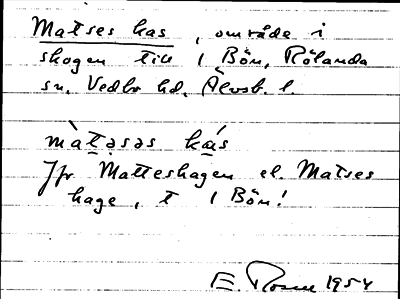 Matses kas, område i
skogen till 1 Bön, Rölanda
sn. Vedbo hd. Älvsb. l.
màtəsəs kás
Jfr Matteshagen el. Matses
hage, t 1 Bön!
E. Rosén 1954